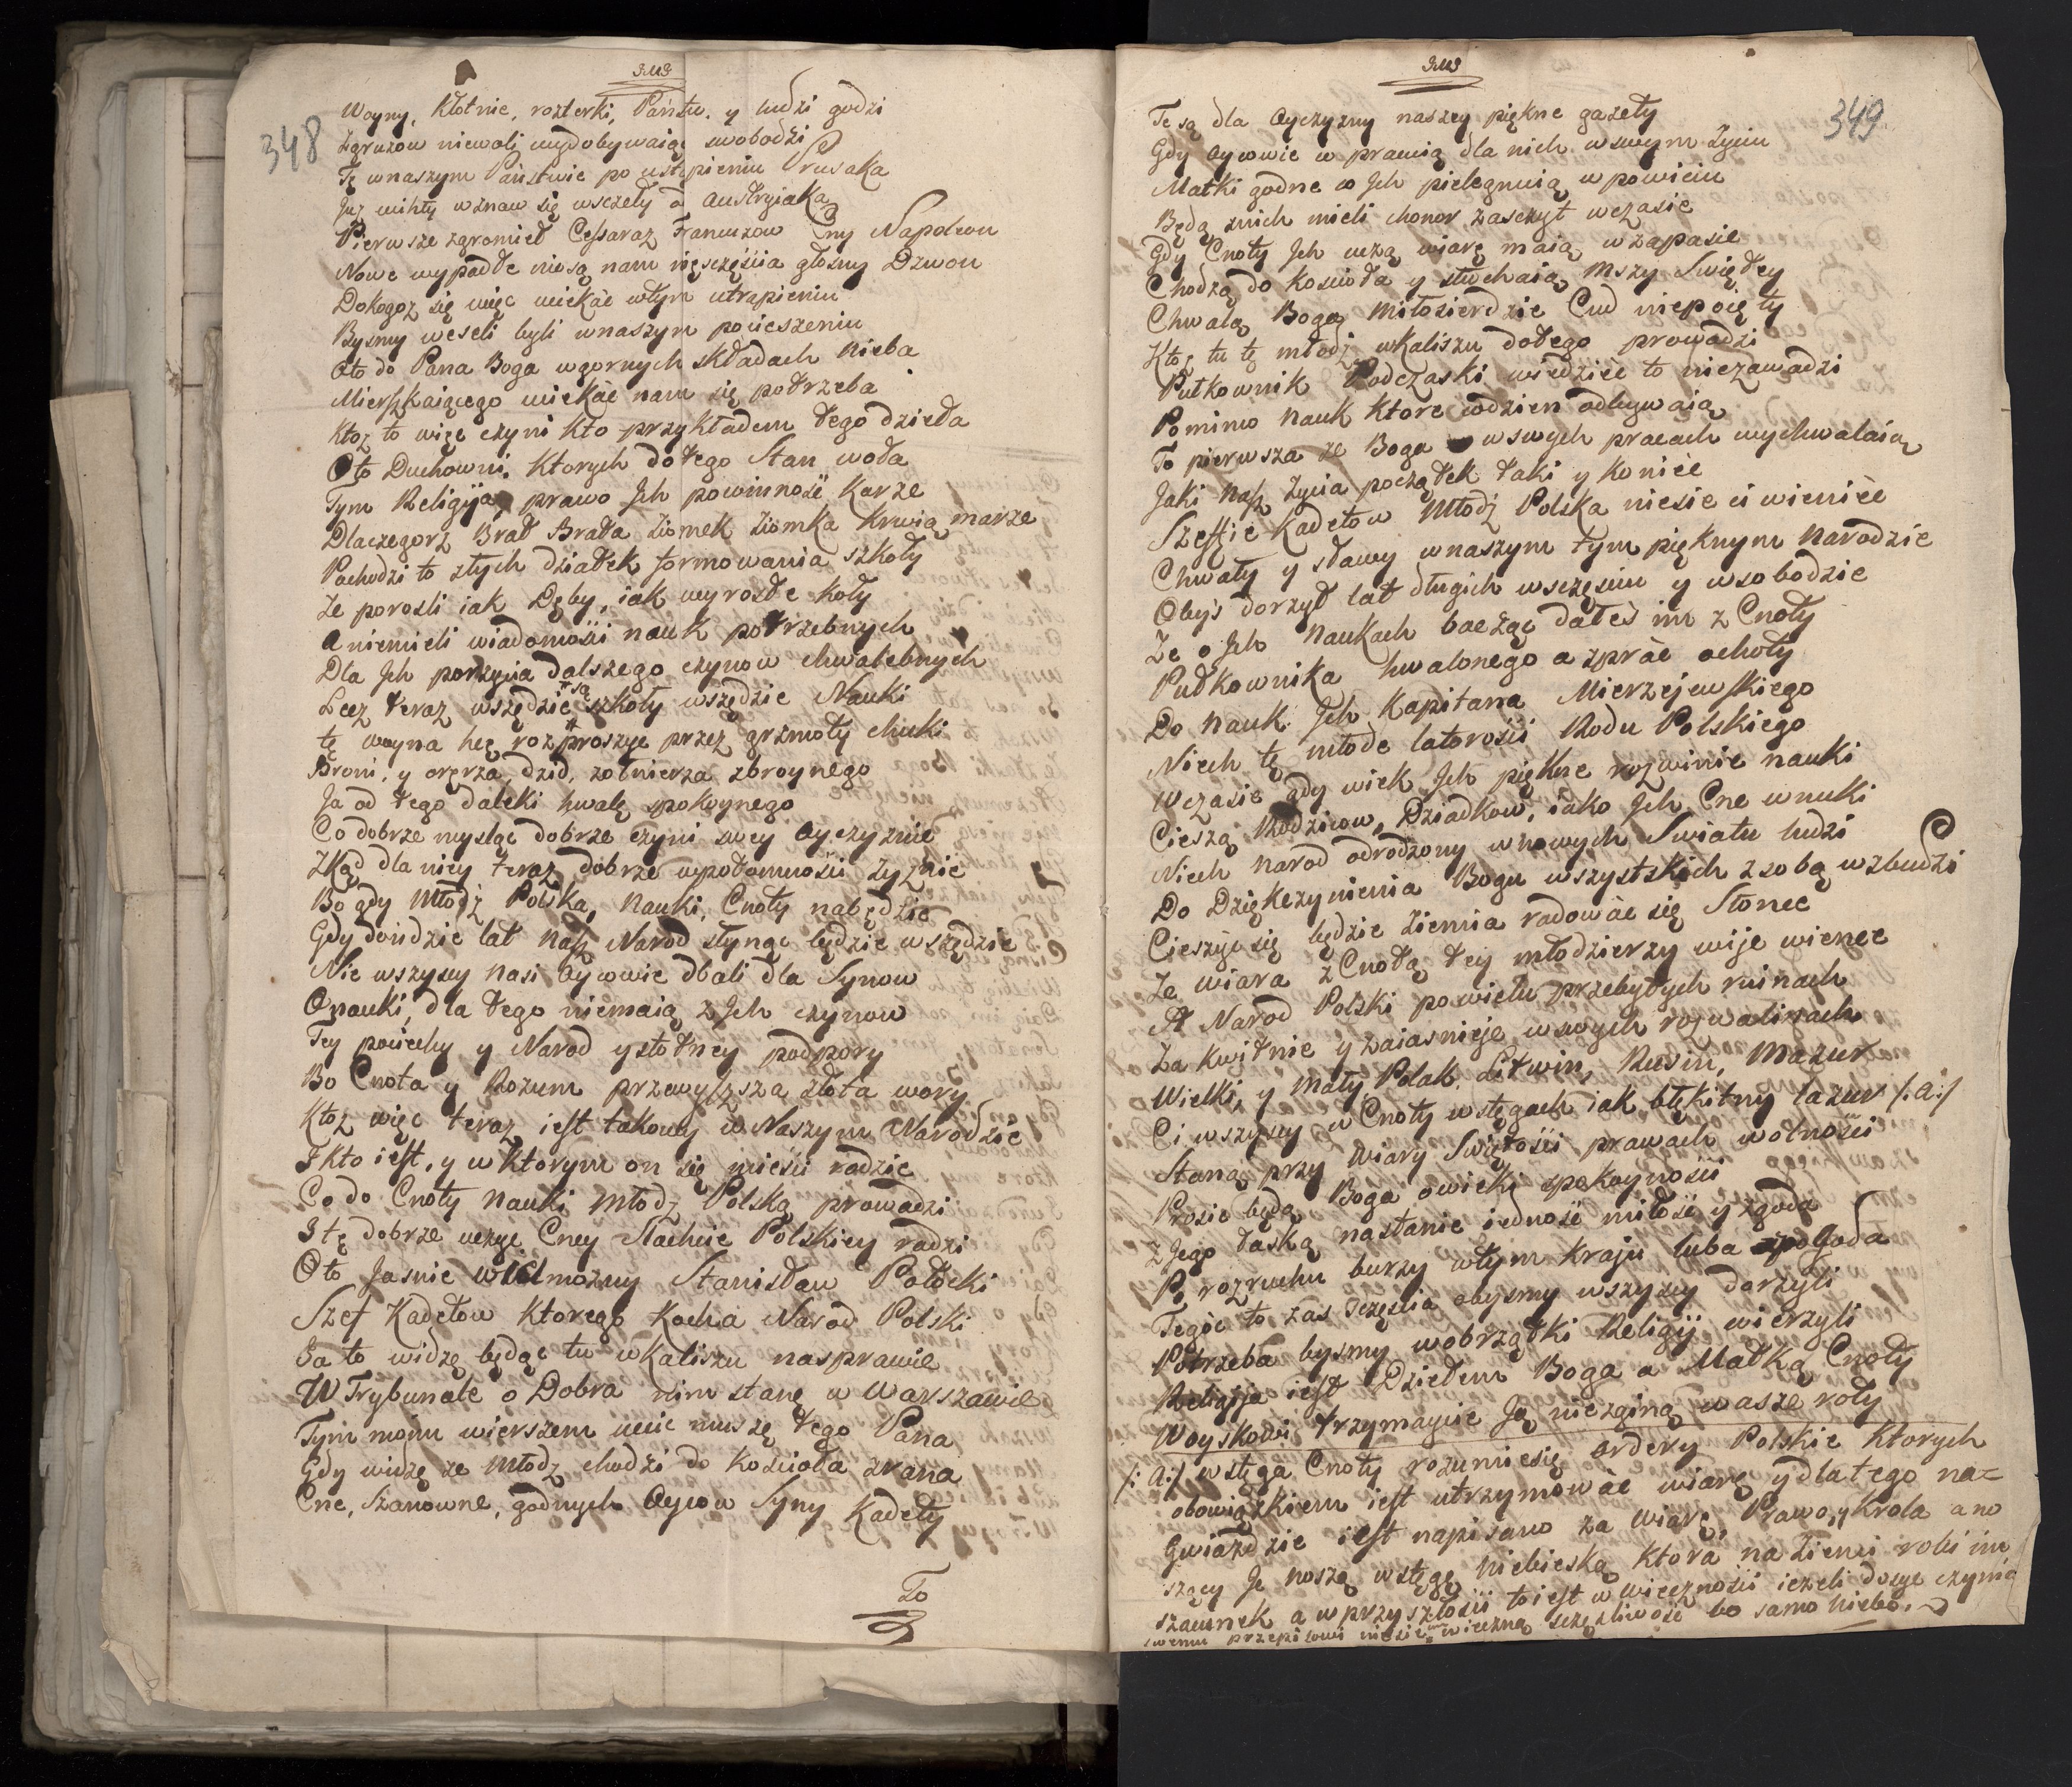 348
Woyny, Kłotnie, rozterki, Państw. y ludzi godzi
Zgruzow niewoli wydobywaiąc swobodzi
Tę wnaszym Państwie po ustąpieniu Prusaka
Już wznaw się wsczęły a Austryiaka
Pierwsze zgromieł Cessaraz Francuzow Cny Napoleon
Nowe wypadłe niosą nam nięszczęścia głosny Dzwon
Dokogoż się więc uciekàć wtym utrapieniu
Bysmy weseli byli wnaszym pocieszeniu
Oto do Pana Boga wgornych składach Nieba
Mieszkaiącego uciekàć nam się potrzeba
Ktoż to więc czyni Kto przykładem tego dzieła
Oto Duchowni, Ktorych do tego Stan woła
Tym Religija, prawo Jch powinność Karze
Dlaczegorz Brat Brata Ziomek Ziomka Krwią marze
Pochodzi to złych dziatek formowania szkoły
Ze porosli iak Dęby, iak wyrosłe Koły
A niemieli wiadomości nauk potrzebnych
Dla Jch porzycia dalszego czynow chwalebnych
Lecz teraz wszędzie są szkoły wszędzie Nauki
tę woyna hcę rozproszyc przez grzmoty chuki
Broni, y oręrza, dzid, zołnierza zbroynego
Ja od tego daleki hwalę spokoynego
Co dobrze mysląc dobrze czyni swey Oyczyznie
Zkąd dla niey teraz dobrze wpotomnosci Zyznie
Bo gdy Młodz Polska, Nauki, Cnoty nabędzie
Gdy doidzie lat Nasz Narod słynąc będzie wszędzie
Nie wszyscy Nasi Oycowie dbali dla Synow
Onauki, dla tego niemaią z Jch czynow
Tey pociechy y Narod ystotney podpory
Bo Cnota y Rozum przewyszsza złota wory
Ktoz więc teraz iest takowy w Naszym Narodzie
I kto iest, y w Ktorym on się miesci rodzie
Co do Cnoty Nauki Młodz Polską prowadzi
I tę dobrze uczyc Cney Slachcie Polskiey radzi
Oto Jasnie Wielmozny Stanisław Potocki
Szef Kadetow Ktorego Kocha Narod Polski
Ja to widzę będąc tu w Kaliszu nasprawie
W Trybunale o Dobra nim stanę w Warszawie
Tym moim wierszem ucić muszę tego Pana
Gdy widzę ze Młodz chodzi do Kościoła zrana
Cne, Szanowne, godnych Oycow Syny Kadety
To
349
Te są dla Oyczyzny naszey piękne gazety
Gdy Oycowie w prawią dla nich wswym Zyciu
Matki godne co Jch pielegnuią w powiciu
Będą znich mieli chonor, zasczyt wczasie
Gdy Cnoty Jch uczą wiarę maią w zapasie
Chodzą do Koscioła y słuchaią Mszy Swiętey
Chwalą Boga Miłosierdzie Cud niepoięty
Ktoz tu tę młodz wKaliszu dotego prowadzi
Pułkownik Podczaski wiedziéć to niezawadzi
Pomimo Nauk Ktore codzien odbywaią
To pierwsza ze Boga wswych pracach wychwalaią
Jaki Nasz Zycia początek taki y Koniéc
Szeffie Kadetow Młodz Polska niesie ci wieniéc
Chwały y sławy wnaszym tym pięknym Narodzie
Obyś dorzył lat długich wsczęsciu y wsobodzie
Ze o Jch Naukach bacząc dałeś im z Cnoty
Pułkownika hwalonego a zpràc ochoty
Do Nauk Jch Kapitana Mierzejewskiego
Niech tę młode latorosli Rodu Polskiego
Wczasie gdy wiek Jch piękne rozwinie nauki
Cieszą Rodzicow, Dziadkow, iako Jch Cne wnuki
Niech Narod odrodzony wnowych Swiatu ludzi
Do Dziękczynienia Bogu wszystskich z sobą wzbudzi
Cieszyć się będzie Ziemia radowàc się Słonce
Ze wiara z Cnotą tey młodzierzy wije wience
A Narod Polski powielu przebytych ruinach
Zakwitnie y zaiasnieje wswych rozwalinach
Wielki, y Mały, Polak, Litwin, Rusin, Mazur
Ci wszyscy w Cnoty wstęgach iak błękitny lazur /:a:/
Staną przy Wiary Swiętosci prawach wolności
Prosic będą Boga owieki spokoynosci
Z Jego łaską nastanie iednosc miłość y zgoda
Po rozruchu burzy wtym Kraju luba pogoda
Tegoć to zas Sczęscia obysmy wszyscy dorzyli
Potrzeba bysmy wobrządki Religij wierzyli
Religija iest Dziełem Boga a Matką Cnoty
Woyskowi trzymaycie Ją niezginą wasze roty
/: a:/ wstęga Cnoty rozumiesię ordery Polskie Ktorych
obowiązkiem iest utrzymowàc wiarę ydlatego na=
Gwiaździe iest napisano za Wiarę, Prawo, y Krola a no
szący Je noszą wstęgę Niebieską Ktora na Ziemi robi im
szacunek a w przyszłosci toiest w wiecznosci iezeli dosyc czynią
swemu przepisowi niesie im wieczną sczęsliwość bo samo Niebo.